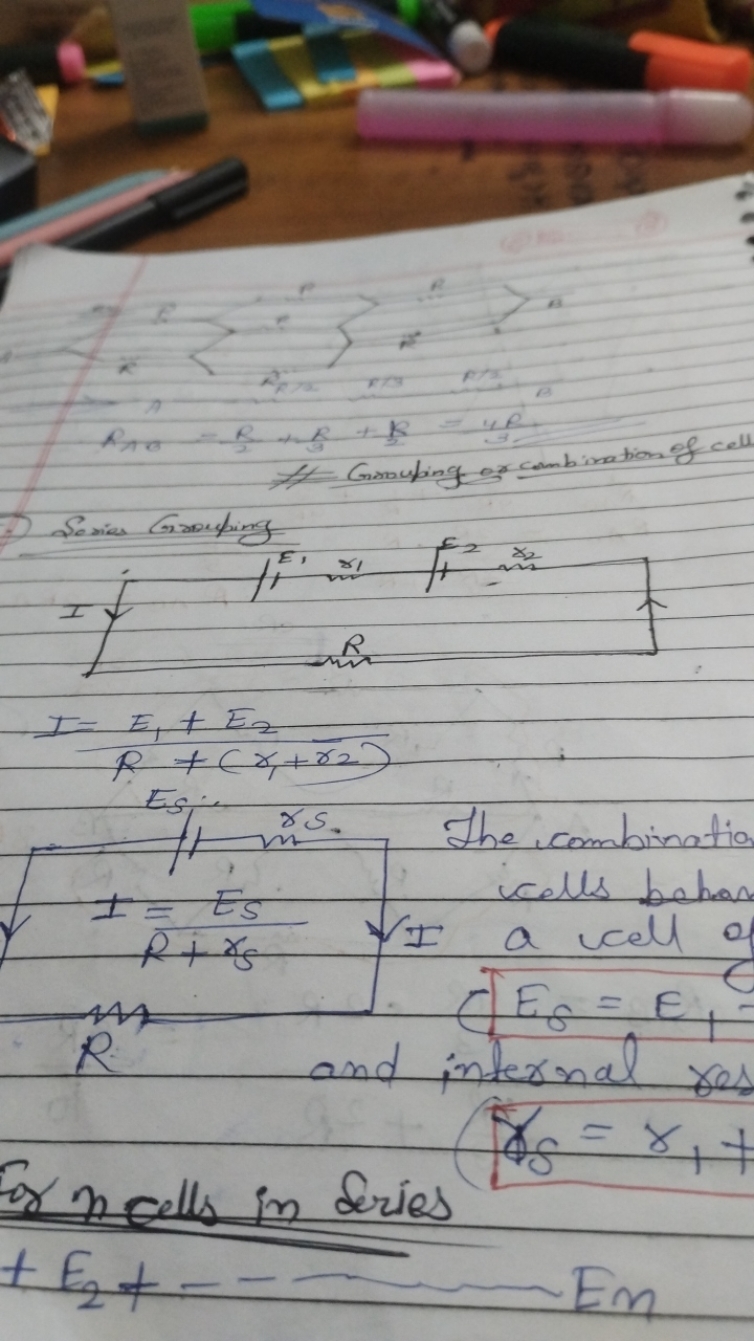 R
R
B
A
R
R
R/2 R/3 R/2
A B
R_AB = R/2 + R/3 + R/2 = 4R/3
// Grouping or combination of cell
Series Grouping
E1 r1 E2 r2
I
R
I = E1 + E2
R + (r1 + r2)
Es rs
I = Es
R + rs
I
R
The combinatio
cells behav
a cell of
Es = E1
and internal res
rs = r1 +
For n cells in Series
+ E2 + - - - En